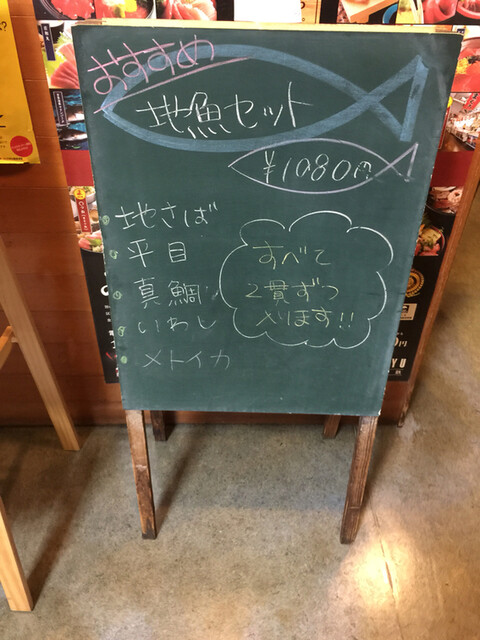 おすすめ
地魚セット
¥1080円
地さば
平目
真鯛
いわし
メトイカ
すべて
2貫ずつ
入ります!!